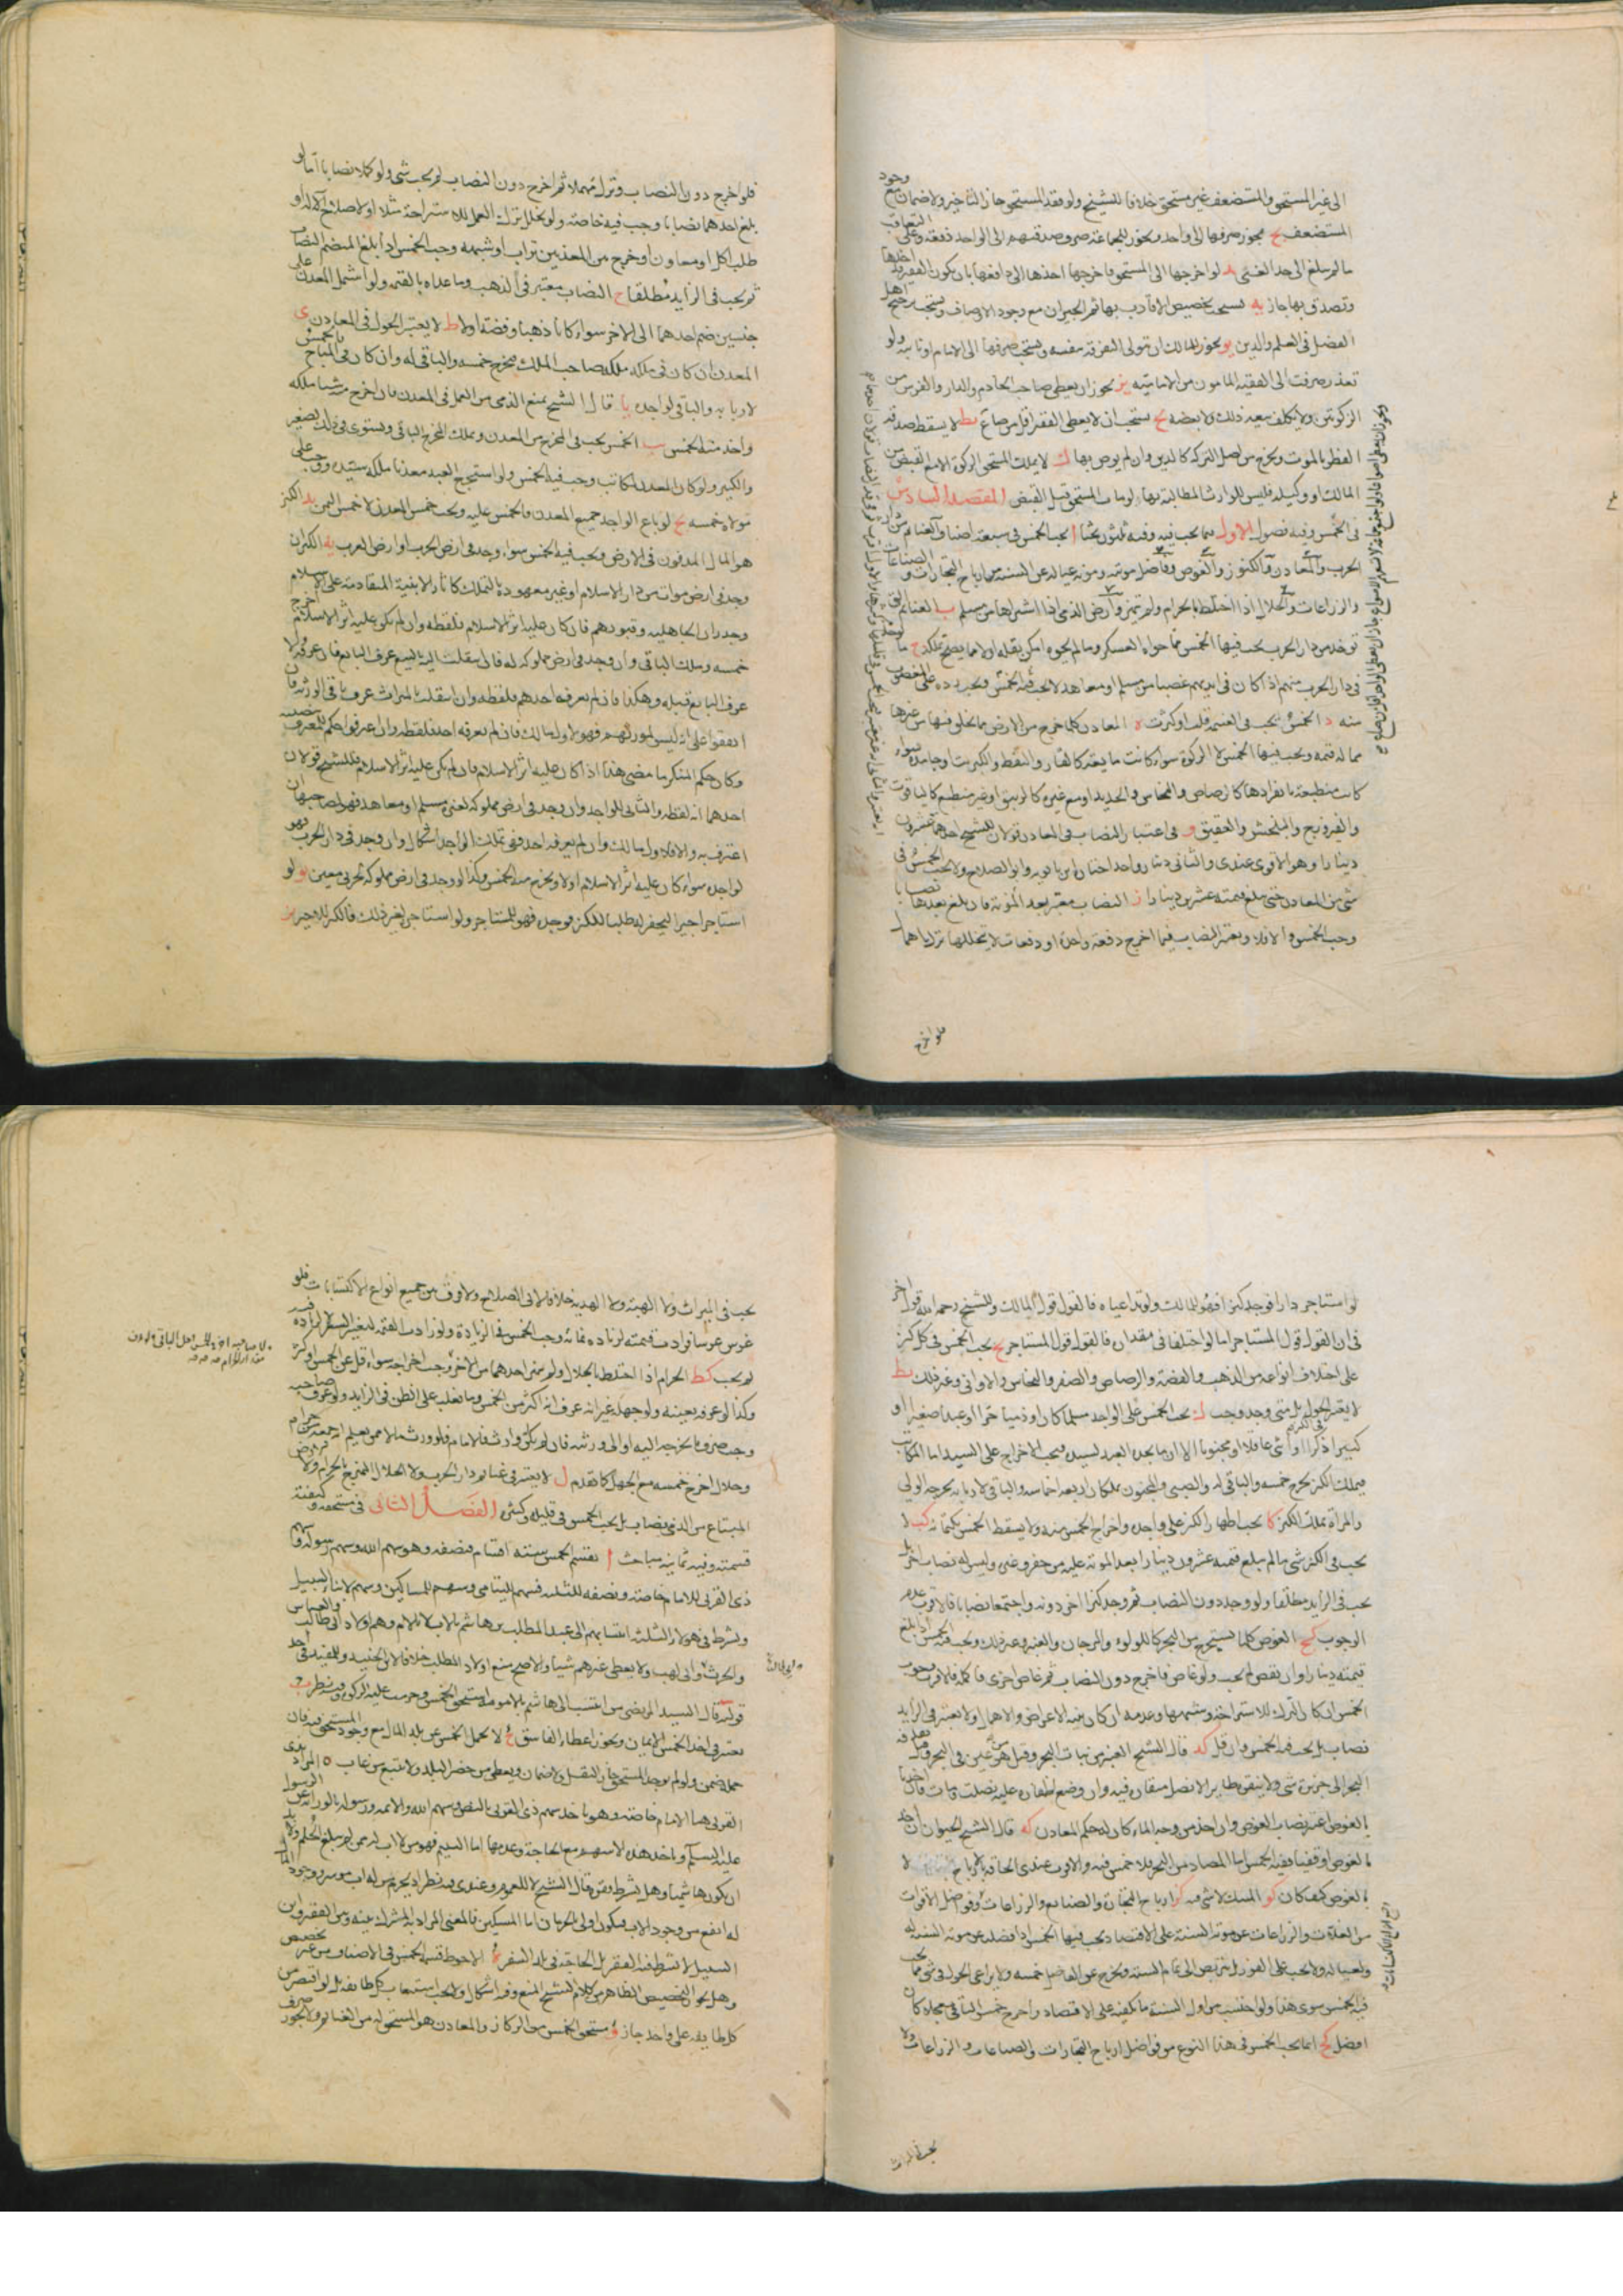 الى غير المستحق والمستضعف غير مستحق خلافا للشيخ ولو فقد المستحق جاز التاخير ولا ضمان مع وجود
المستضعف يج يجوز صرفها الى واحد ويجوز للجماعة صرف صدقتهم الى الواحد دفعة وعلى التعاقب
ما لم يبلغ الى حد الغنى يد لو اخرجها الى المستحق فاخرجها احذها الى دافعها بان يكون الفقير اخذها
وتصدق بها جاز يه يستحب تخصيص الاقارب بها ثم الجيران مع وجود الاوصاف ويستحب ترجيح اهل
الفضل في العلم والدين يو يجوز للمالك ان يتولى التفرقة بنفسه ويستحب صرفها الى الامام او نائبه ولو
تعذر صرفت الى الفقيه المامون من الامامية يز يجوز ان يعطى صاحب الخادم والدار والفرس من
الزكوتين ولا يكلف بيع ذلك ولا بعضه يح يستحب ان لا يعطى الفقير اقل من صاع يط لا يسقط صدقة
الفطر بالموت وتخرج من اصل التركة كالدين وان لم يوص بها ك لا يملك المستحق الزكوة الا مع القبض من
المالك او وكيله فليس للوارث المطالبة بها لو مات المستحق قبل القبض المقصد السادس
في الخمس وفيه فصول الاول فيما يجب فيه وفيه ثلثون بحثا ا يجب الخمس في سبعة اصناف الغنائم من دار
الحرب والمعادن والكنوز والغوص وفاضل مونته ومونة عياله عن السنة من ارباح التجارات والصناعات
والزراعات والحلال اذا اختلط بالحرام ولم يتميز وارض الذمي اذا اشتراها من مسلم ب الغنائم التي
توخذ من دار الحرب يجب فيها الخمس مما حواه العسكر وما لم يحوه امكن نقله اولا مما يصح تملكه ج ما
في دار الحرب منهم اذا كان في ايديهم غصبا من مسلم او معاهد لا يجب فيه الخمس ويجب رده على المغصوب
منه د الخمس يجب في الغنيمة قلت او كثرت ه المعادن كلما خرج من الارض مما يخلق فيها من غيرها
مما له قيمة ويجب فيها الخمس لا الزكوة سواء كانت مايعة كالقار والنفط والكبريت او جامدة سواء
كانت منطبعة بانفرادها كالرصاص والنحاس والحديد او مع غيره كالزيبق او غير منطبع كالياقوت
والفيروزج والبلخش والعقيق و في اعتبار النصاب في المعادن قولان للشيخ احدهما عشرون
دينارا وهو الاقوى عندي والثاني دينار واحد اختاره ابن بابويه وابو الصلاح ولا يجب الخمس في
شي من المعادن حتى يبلغ قيمته عشرين دينارا ز النصاب معتبر بعد المؤنة فان بلغ بعدها نصابا
وجب الخمس والا فلا ويعتبر النصاب فيما اخرج دفعة واحدة او دفعات لا يتخللها ترك اهمال
فلو اخرج
فلو اخرج دون النصاب وترك مهملا ثم اخرج دون النصاب لم يجب شي ولو كملا نصابا اما لو
بلغ احدهما نصابا وجب فيه خاصة ولو تخلل ترك العمل للاستراحة مثلا او لاصلاح آلة او
طلب اكل او معاون او خرج من المعدن بين تراب او شبهه وجب الخمس اذا بلغ المنضم النصاب
ثم يجب في الزايد مطلقا ح النصاب معتبر في الذهب وما عداه بالقيمة ولو اشتمل المعدن على
جنسين ضم احدهما الى الاخر سواء كانا ذهبا وفضة اولا ط لا يعتبر الحول في المعادن ى
المعدن ان كان في ملكه ملكه صاحب الملك يخرج خمسه والباقي له وان كان في المباح فالخمس
لاربابه والباقي لواجده يا قال الشيخ يمنع الذمي من العمل في المعدن فان اخرج منه شيئا ملكه
واخذ منه الخمس يب الخمس يجب في المخرج من المعدن ويملك المخرج الباقي ويستوى في ذلك الصغير
والكبير ولو كان المعدن لمكاتب وجب فيه الخمس ولو استخرج العبد معدنا ملكه سيده ووجب على
مولاه خمسه يج لو باع الواجد جميع المعدن فالخمس عليه ويجب خمس المعدن لا خمس الثمن يد الكنز
هو المال المدفون في الارض ويجب فيه الخمس سواء وجد في ارض الحرب او ارض العرب يه الكنز ان
وجد في ارض موات من دار الاسلام او غير معهودة بالتملك كاثار الابنية المتقادمة على الاسلام
وجدران الجاهلية وقبورهم فان كان عليه اثر الاسلام فلقطة وان لم يكن عليه اثر الاسلام اخرج
خمسه وملك الباقي وان وجد في ارض مملوكة له فان انتقلت اليه بالبيع عرف البايع فان عرفه والا
عرف البايع قبله وهكذا فان لم يعرفه احدهم فلقطة وان انتقلت بالميراث عرف باقي الورثة فان
اتفقوا على انه ليس لمورثهم فهو لاول مالك فان لم يعرفه احد فلقطة وان اعترفوا حكم للمعترف بحصته
وكان حكم المنكر ما مضى هذا اذا كان عليه اثر الاسلام فان لم يكن عليه اثر الاسلام فللشيخ قولان
احدهما انه لقطة والثاني للواجد وان وجد في ارض مملوكة لغني مسلم او معاهد فهو لصاحبها ان
اعترف به والا فلاول مالك وان لم يعرفه احد ففي تملك الواجد اشكال وان وجد في دار الحرب فهو
لواجده سواء كان عليه اثر الاسلام اولا ويخرج منه الخمس وكذا لو وجد في ارض مملوكة لحربي معين يو لو
استاجر اجيرا ليحفر له طلبا للكنز فوجده فهو للمستاجر ولو استاجره لغير ذلك فالكنز للاجير يز
لو استاجر دارا فوجد كنزا فهو للمالك ولو تداعياه فالقول قول المالك وللشيخ رحمه الله قول اخر
في ان القول قول المستاجر اما لو اختلفا في مقداره فالقول قول المستاجر يح يجب الخمس في كل كنز
على اختلاف انواعه من الذهب والفضة والرصاص والصفر والنحاس والاواني وغير ذلك يط
لا يعتبر الحول بل متى وجد وجب ك يجب الخمس على الواجد مسلما كان او ذميا حرا او عبدا صغيرا او
كبيرا ذكرا او انثى عاقلا او مجنونا الا ان ما يجده العبد لسيده فيجب الاخراج على السيد اما المكاتب
فيملك الكنز يخرج خمسه والباقي له والصبي والمجنون يملكان اربعة اخماسه والباقي لاربابه يخرجه الولي
والمراة تملك الكنز كا يجب اظهار الكنز على واجده واخراج الخمس منه ولا يسقط الخمس بكتمانه كب لا
يجب في الكنز شي ما لم يبلغ قيمته عشرون دينارا بعد المونة عليه من حفر وغيره وليس له نصاب اخر بل
يجب في الزايد مطلقا ولو وجد دون النصاب ثم وجد كنزا اخر دونه واجتمعا نصابا فالاقرب عدم
الوجوب كج الغوص كلما يستخرج من البحر كاللولوء والمرجان والعنبر وغير ذلك ويجب فيه الخمس اذا بلغ
قيمته دينارا وان نقص لم يجب ولو غاص فاخرج دون النصاب ثم غاص اخرى فاكمله فالاقرب وجوب
الخمس ان كان الترك للاستراحة وشبهها وعدمه ان كان بنية الاعراض والاهمال ولا يعتبر في الزايد
نصاب بل يجب فيه الخمس وان قل كد قال الشيخ العنبر من نبات البحر وقيل هو من عين في البحر
بالغوص اعتبر نصاب الغوص وان اخذ من وجه الماء كان له حكم المعادن كه قال الشيخ الحيوان ان اخذ
بالغوص كيف كان كو المسك لا شي فيه كز ارباح التجارات والصنايع والزراعات وفواضل الاقوات
من الغلات والزراعات عن مونة السنة على الاقتصاد يجب فيها الخمس اذا فضل عن مونة السنة له
ولعياله ولا يجب على الفور بل يتربص الى تمام السنة ويخرج عن الفاضل خمسه ولا يراعى الحول في شي مما يجب
فيه الخمس سوى هذا ولو احتسب من اول السنة ما يكفيه على الاقتصاد واخرج خمس الباقي معجلا كان
افضل كح انما يجب الخمس في هذا النوع من فواضل ارباح التجارات والصناعات والزراعات ولا
يجب في الميراث
يجب في الميراث ولا الهبة ولا الهدية خلافا لابي الصلاح ولا فرق بين جميع انواع الاكتسابات فلو
غرس غرسا فزادت قيمته لزيادة نمائه وجب الخمس في الزيادة ولو زادت القيمة لتغير السعر لا لزيادة فيه
لم يجب كط الحرام اذا اختلط بالحلال ولم يتميز احدهما من الاخر وجب اخراجه سواء قل عن الخمس او كثر
وكذا لو عرفه بعينه ولو جهله غير انه عرف انه اكثر من الخمس وما يغلب على الظن في الزايد ولو عرف صاحبه
وحلال اخرج خمسه مع الجهل كما تقدم ل لا يعتبر في غنائم دار الحرب ولا الحلال الممتزج بالحرام ولا ارض
المبتاع من الذمي نصاب بل يجب الخمس في قليله وكثيره الفصل الثاني في مستحقه وكيفية
قسمته وفيه ثمانية مباحث ا يقسم الخمس ستة اقسام فنصفه وهو سهم الله وسهم رسوله وسهم
ذي القربى للامام خاصة ونصفه للثلثة فسهم لليتامى وسهم للمساكين وسهم لابناء السبيل
ويشرط في هولاء الثلثة انتسابهم الى عبد المطلب بن هاشم بالاب لا بالام وهم اولاد ابي طالب والعباس
والحرث وابي لهب ولا يعطى غيرهم شيئا والاصح منع اولاد المطلب خلافا لابن الجنيد وللمفيد في احد
قوليه قال السيد المرتضى من انتسب الى هاشم بالام مستحق الخمس وحرمت عليه الزكوة وفيه نظر ب
يعتبر في اخذ الخمس الايمان ويجوز اعطاء الفاسق ج لا يحمل الخمس عن بلد المال مع وجود المستحق فيه فان
حمله ضمن ولو لم يوجد المستحق جاز النقل ولا ضمان ويعطى من حضر البلد ولا يتبع من غاب ه المراد بذي
القربى هنا الامام خاصة وهو ياخذ سهم ذي القربى بالنص وسهم الله والائمة ورسوله بالوراثة عن الرسول
عليه السلام وياخذ هذه الاسهم مع الحاجة وعدمها اما اليتيم فهو من لا اب له ممن لم يبلغ الحلم ولابد
ان يكون هاشميا وهل يشرط فقره قال الشيخ لا للعموم وعندي فيه نظر اذ يحرم من له اب موسر ووجود المال
له انفع من وجود الاب فيكون اولى بالحرمان اما المسكين فالمعنى المراد به المشترك بينه وبين الفقير وابن
السبيل لا يشترط فيه الفقر بل الحاجة في بلد السفر ز الاحوط قسمة الخمس في الاصناف من غير تخصيص
وهل يجوز التخصيص الظاهر من كلام الشيخ المنع وفيه اشكال ولا يجب استيعاب كل طائفة بل لو اقتصر من
كل طايفة على واحد جاز ح مستحق الخمس من الركاز والمعادن هو المستحق له من الغنائم ولا يجوز صرف